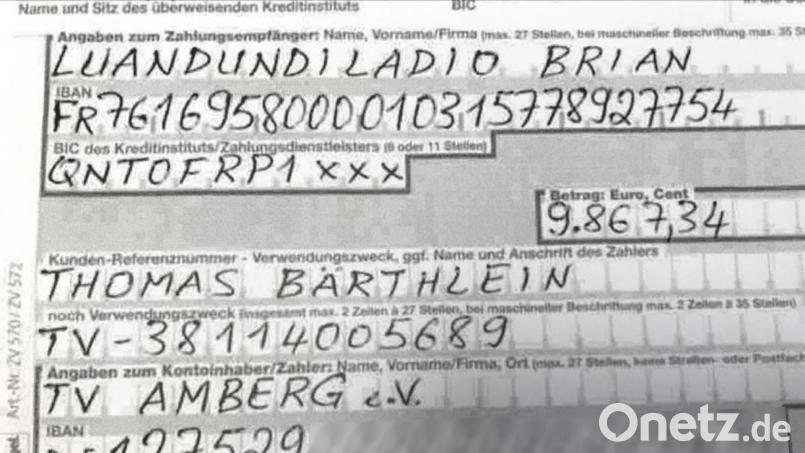 Name und Sitz des überweisenden Kreditinstituts BIC
Angaben zum Zahlungsempfänger: Name, Vorname/Firma (max. 27 Stellen, bei maschineller Beschriftung max. 35 S
LUANDUNDILADIO BRIAN
IBAN
FR7616958000010315778927754
BIC des Kreditinstituts/Zahlungsdienstleisters (8 oder 11 Stellen)
QNTOFRP1XXX
Betrag: Euro, Cent
9.867,34
Kunden-Referenznummer - Verwendungszweck, ggf. Name und Anschrift des Zahlers
THOMAS BÄRTHLEIN
noch Verwendungszweck (insgesamt max. 2 Zeilen à 27 Stellen, bei maschineller Beschriftung max. 2 Zeilen à 35 Stellen)
TV-38114005689
Angaben zum Kontoinhaber/Zahler: Name, Vorname/Firma, Ort (max. 27 Stellen, keine Straßen- oder Postfach
TV AMBERG e.V.
IBAN
Art.-Nr. ZV 570 / ZV 572
Onetz.de